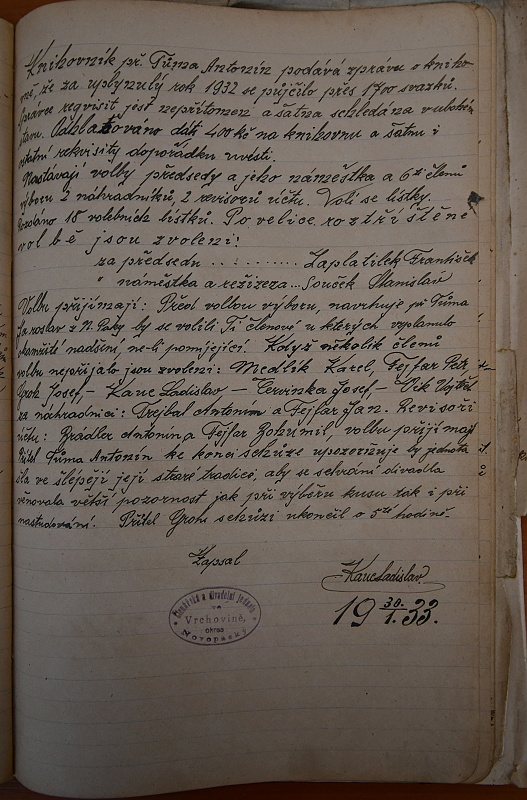 Knihovník př. Tůma Antonín podává zprávu o kniho-
vně, že za uplynulý rok 1932 se půjčilo přes 1700 svazků.
Správce reqvisit jest nepřítomen a šatna schledána v dobrém
stavu. Odhlasováno dáti 400 kč na knihovnu a šatnu i
ostatní rekvisity dopořádku uvésti.
Nastávají volby předsedy a jeho náměstka a 6ti členů
výboru 2 náhradníků, 2 revisorů účtu. Volí se lístky.
Rozdáno 18 volebních lístků. Po velice roztříštěné
volbě jsou zvoleni!
za předsedu . . . . . . . . . . Zaplatílek František
" náměstka a režizera .. Souček Stanislav
Volbu přijímají: Před volbou výboru, navrhuje př. Tůma
Jaroslav z N. Paky by se volili Ti členové u kterých vzplanulo
okamžité nadšení, ne-li pomíjející. Když několik členů
volbu nepřijalo jsou zvoleni: Medlík Karel, Fejfar Petr
Groh Josef, – Kauc Ladislav – Červinka Josef, – Vik Vojtěch
za náhradníci: Trejbal Antonín a Fejfar Jan. Revisoři
účtu: Brádler Antonín a Fejfar Bohumil, volbu přijímají
Přítel Tůma Antonín ke konci schůze upozorňuje by jednota
šla ve šlépějí její staré tradice, aby se sehrání divadla
věnovala větší pozornost jak při výběru kusu tak i při
nastudování. Přítel Groh schůzi ukončil o 5té hodině.
Zapsal
Kauc Ladislav
19 30./1. 33.
Čtenářská a divadelní jednota
ve
Vrchovině,
okres
Novopacký